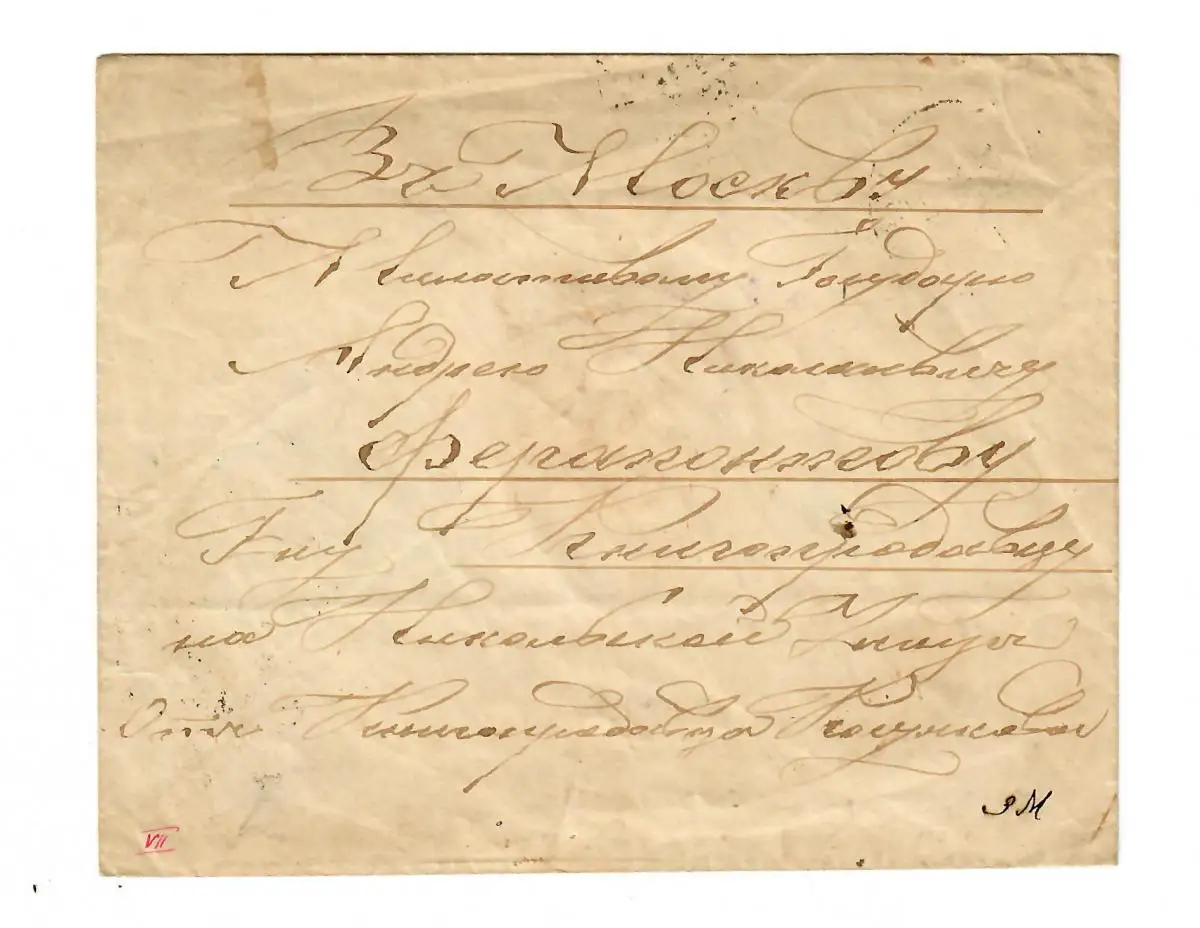 Въ Москву
Милостивому Государю
Андрею Николаевичу
Ферапонтову
Гну Книгопродавцу
на Никольской Улицы
Отъ Книгопродавца
ЭМ
VII